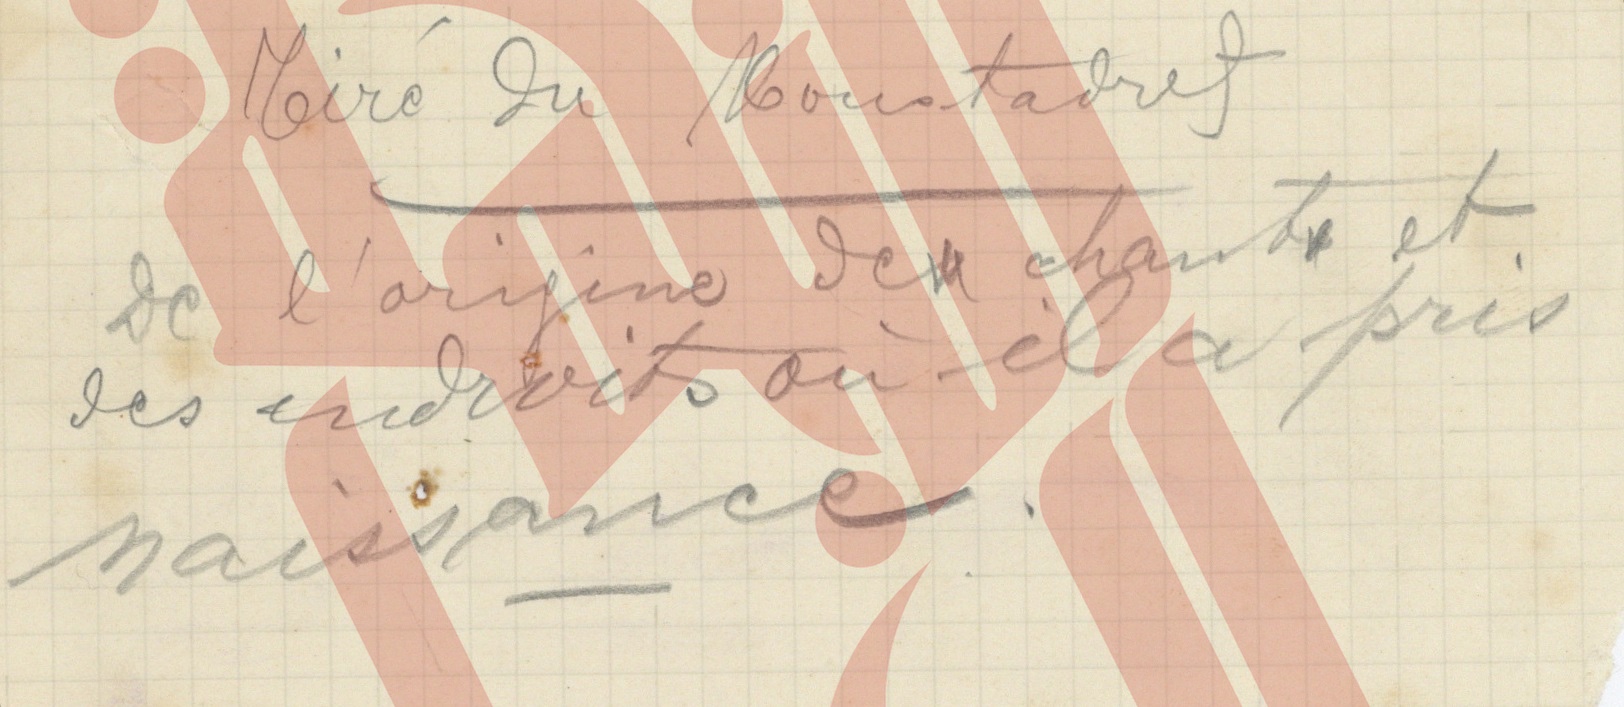 Tiré du Moustadref
De l'origine du chant et
des endroits où il a pris
naissance.